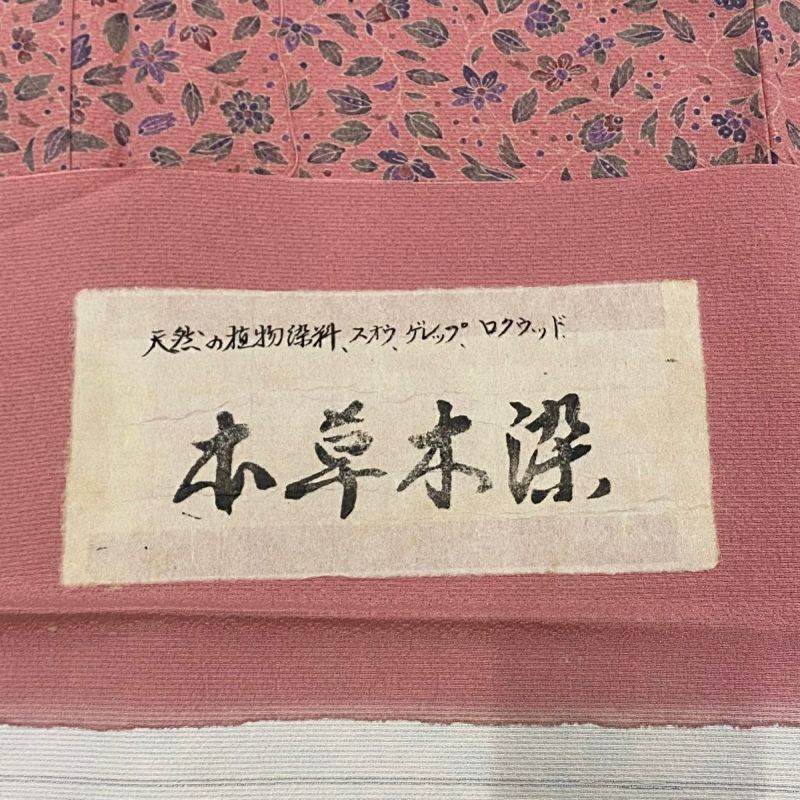 天然の植物染料、スオウ、ゲレップ、ログウッド
本草木染